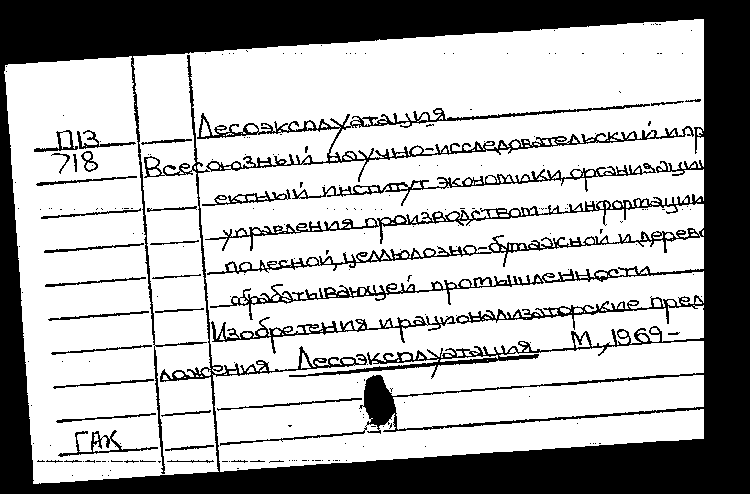 Лесоэксплуатация
П13
718
Всесоюзный научно-исследовательский и пр
ектный институт экономики, организации
управления производством и информации
по лесной, целлюлозно-бумажной и дерево
обрабатывающей промышленности
Изобретения и рационализаторские пред
ложения. Лесоэксплуатация. М., 1969-
ГАК